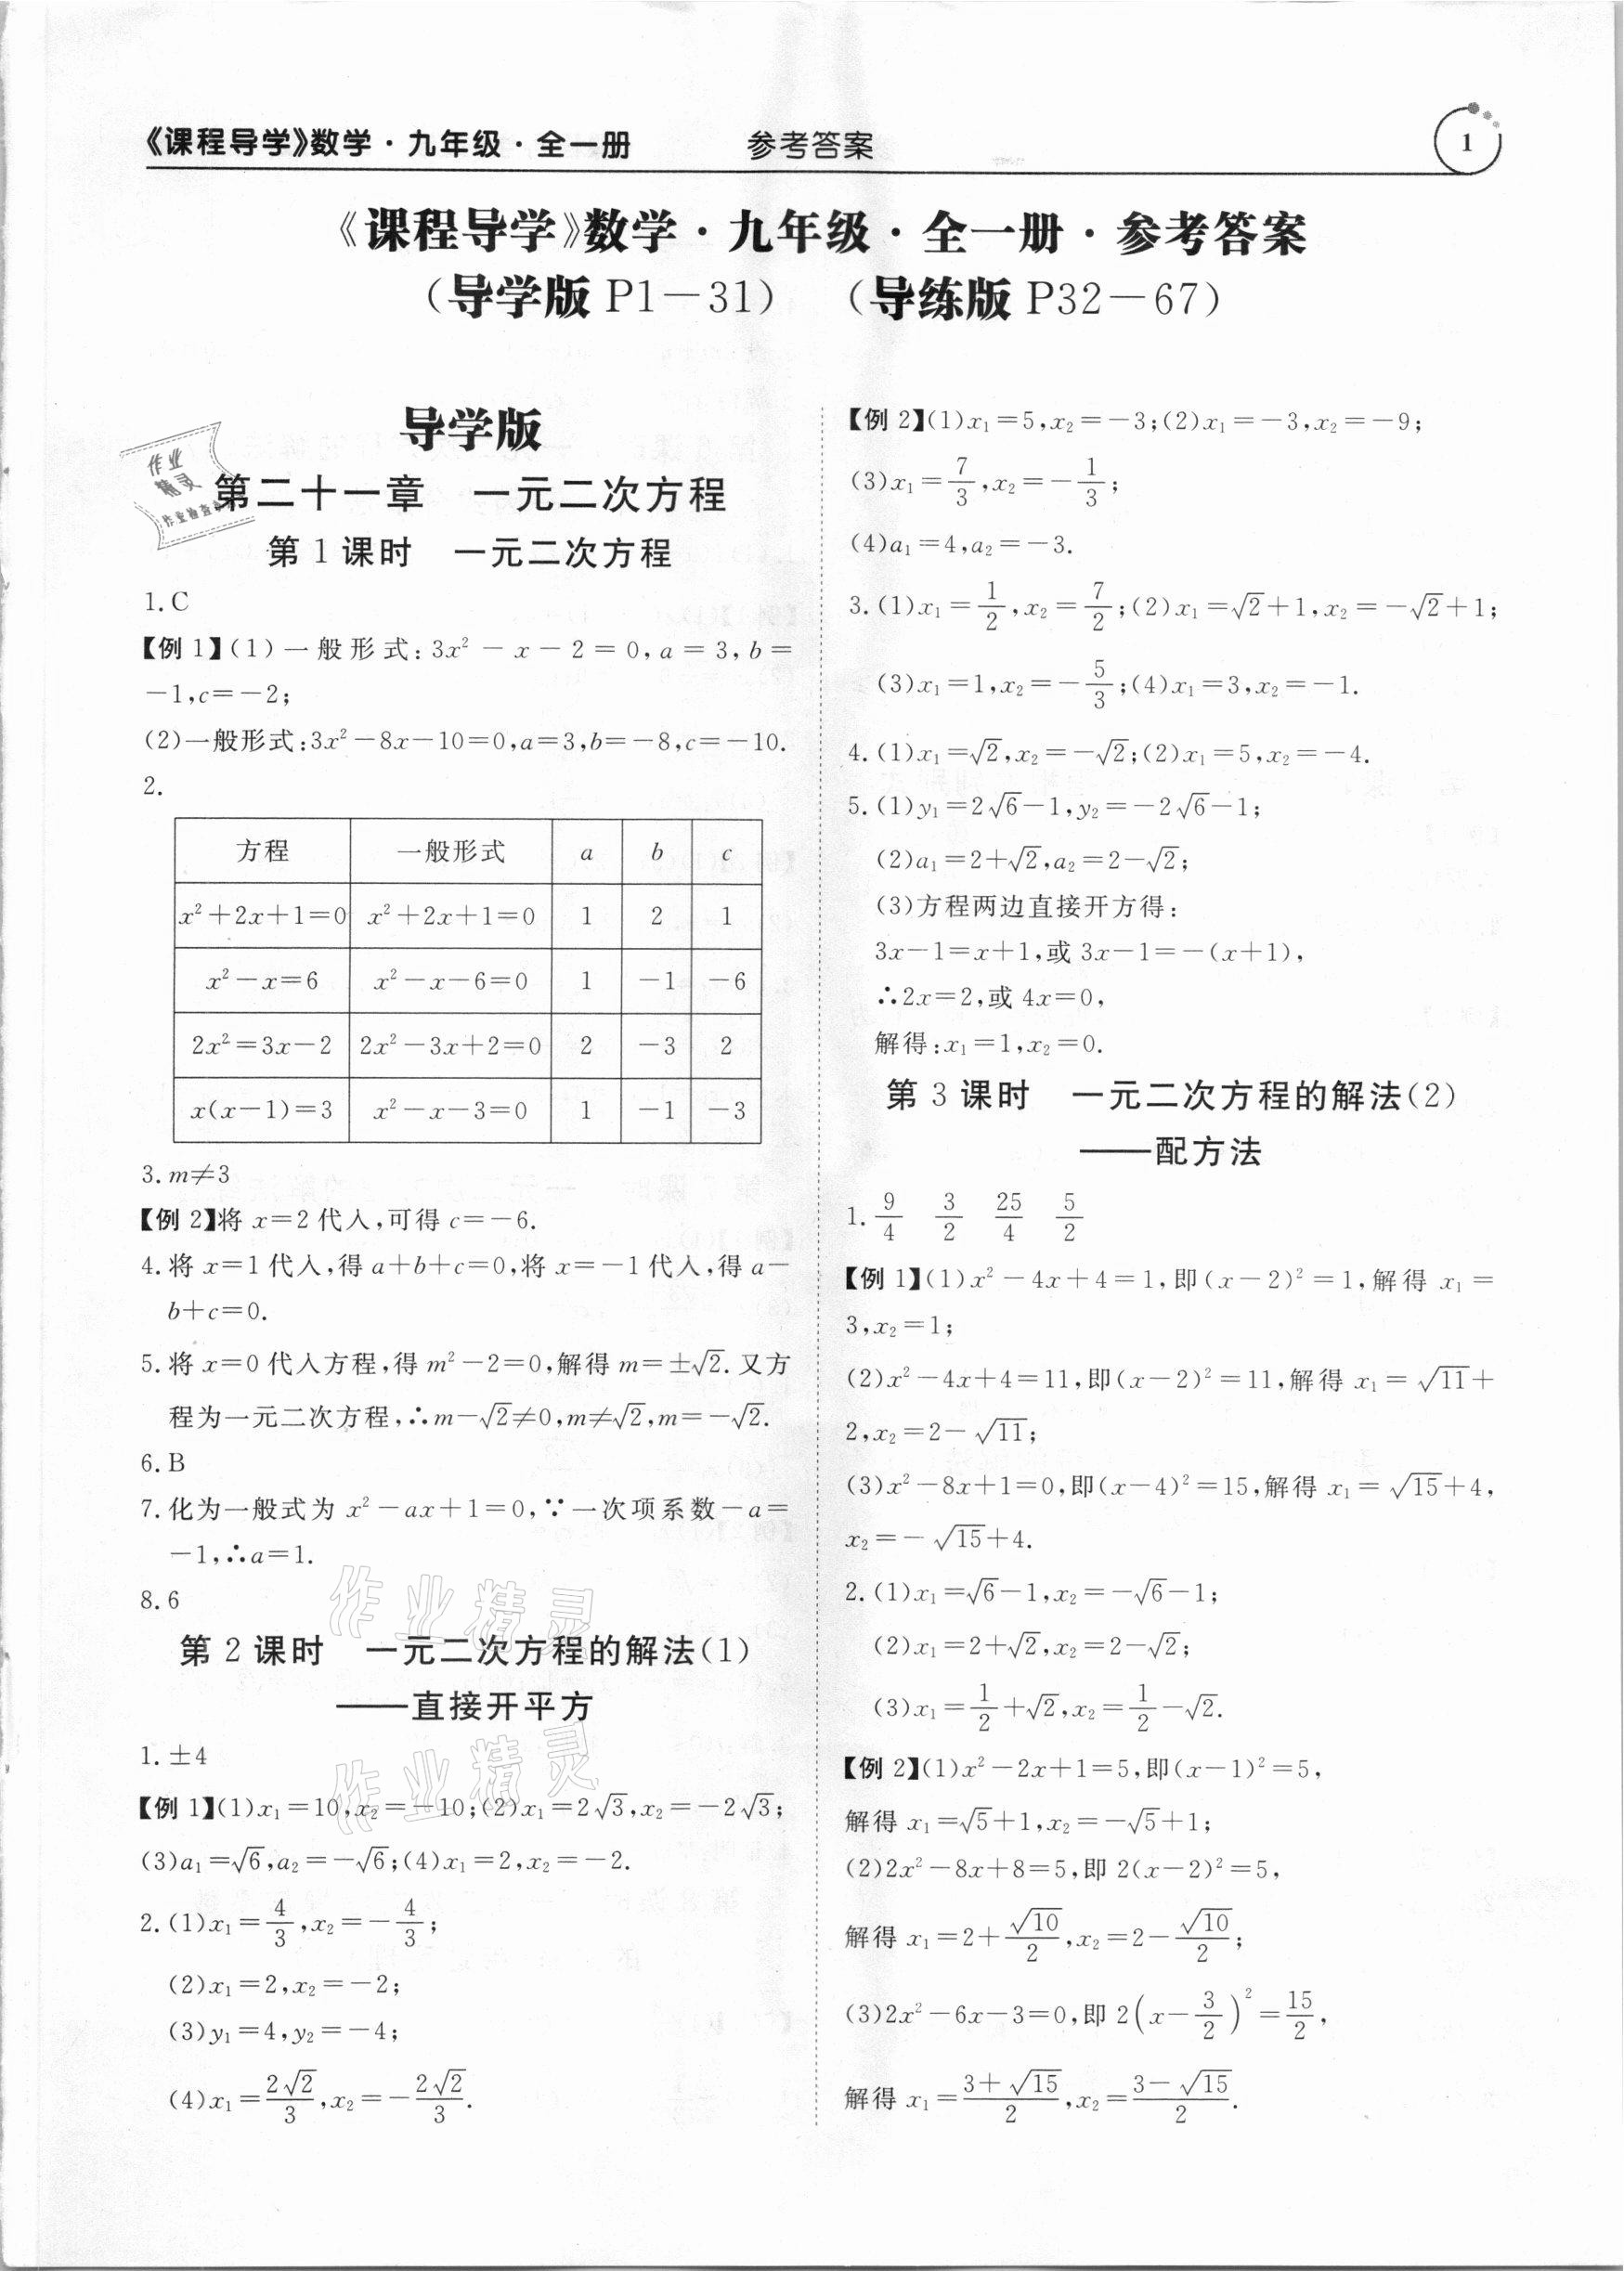 《课程导学》数学·九年级·全一册 参考答案 1
《课程导学》数学·九年级·全一册·参考答案
(导学版 P1－31) (导练版 P32－67)
导学版
作业
精灵
第二十一章 一元二次方程
第 1 课时 一元二次方程
1. C
【例 1】(1)一般形式:3x²－x－2＝0,a＝3,b＝
－1,c＝－2;
(2)一般形式:3x²－8x－10＝0,a＝3,b＝－8,c＝－10.
2.
方程 一般形式 a b c
x²＋2x＋1＝0 x²＋2x＋1＝0 1 2 1
x²－x＝6 x²－x－6＝0 1 －1 －6
2x²＝3x－2 2x²－3x＋2＝0 2 －3 2
x(x－1)＝3 x²－x－3＝0 1 －1 －3
3. m≠3
【例 2】将 x＝2 代入,可得 c＝－6.
4. 将 x＝1 代入,得 a＋b＋c＝0,将 x＝－1 代入,得 a－
b＋c＝0.
5. 将 x＝0 代入方程,得 m²－2＝0,解得 m＝±√2. 又方
程为一元二次方程,∴m－√2≠0,m≠√2,m＝－√2.
6. B
7. 化为一般式为 x²－ax＋1＝0,∵一次项系数－a＝
－1,∴a＝1.
8. 6
作业精灵
第 2 课时 一元二次方程的解法(1)
——直接开平方
1. ±4
作业精灵
【例 1】(1)x₁＝10,x₂＝－10;(2)x₁＝2√3,x₂＝－2√3;
(3)a₁＝√6,a₂＝－√6;(4)x₁＝2,x₂＝－2.
2. (1)x₁＝4/3,x₂＝－4/3;
(2)x₁＝2,x₂＝－2;
(3)y₁＝4,y₂＝－4;
(4)x₁＝2√2/3,x₂＝－2√2/3.
【例 2】(1)x₁＝5,x₂＝－3;(2)x₁＝－3,x₂＝－9;
(3)x₁＝7/3,x₂＝－1/3;
(4)a₁＝4,a₂＝－3.
3. (1)x₁＝1/2,x₂＝7/2;(2)x₁＝√2＋1,x₂＝－√2＋1;
(3)x₁＝1,x₂＝－5/3;(4)x₁＝3,x₂＝－1.
4. (1)x₁＝√2,x₂＝－√2;(2)x₁＝5,x₂＝－4.
5. (1)y₁＝2√6－1,y₂＝－2√6－1;
(2)a₁＝2＋√2,a₂＝2－√2;
(3)方程两边直接开方得:
3x－1＝x＋1,或 3x－1＝－(x＋1),
∴2x＝2,或 4x＝0,
解得:x₁＝1,x₂＝0.
第 3 课时 一元二次方程的解法(2)
——配方法
1. 9/4 3/2 25/4 5/2
【例 1】(1)x²－4x＋4＝1,即(x－2)²＝1,解得 x₁＝
3,x₂＝1;
(2)x²－4x＋4＝11,即(x－2)²＝11,解得 x₁＝√11＋
2,x₂＝2－√11;
(3)x²－8x＋1＝0,即(x－4)²＝15,解得 x₁＝√15＋4,
x₂＝－√15＋4.
2. (1)x₁＝√6－1,x₂＝－√6－1;
(2)x₁＝2＋√2,x₂＝2－√2;
(3)x₁＝1/2＋√2,x₂＝1/2－√2.
【例 2】(1)x²－2x＋1＝5,即(x－1)²＝5,
解得 x₁＝√5＋1,x₂＝－√5＋1;
(2)2x²－8x＋8＝5,即 2(x－2)²＝5,
解得 x₁＝2＋√10/2,x₂＝2－√10/2;
(3)2x²－6x－3＝0,即 2(x－3/2)²＝15/2,
解得 x₁＝(3＋√15)/2,x₂＝(3－√15)/2.